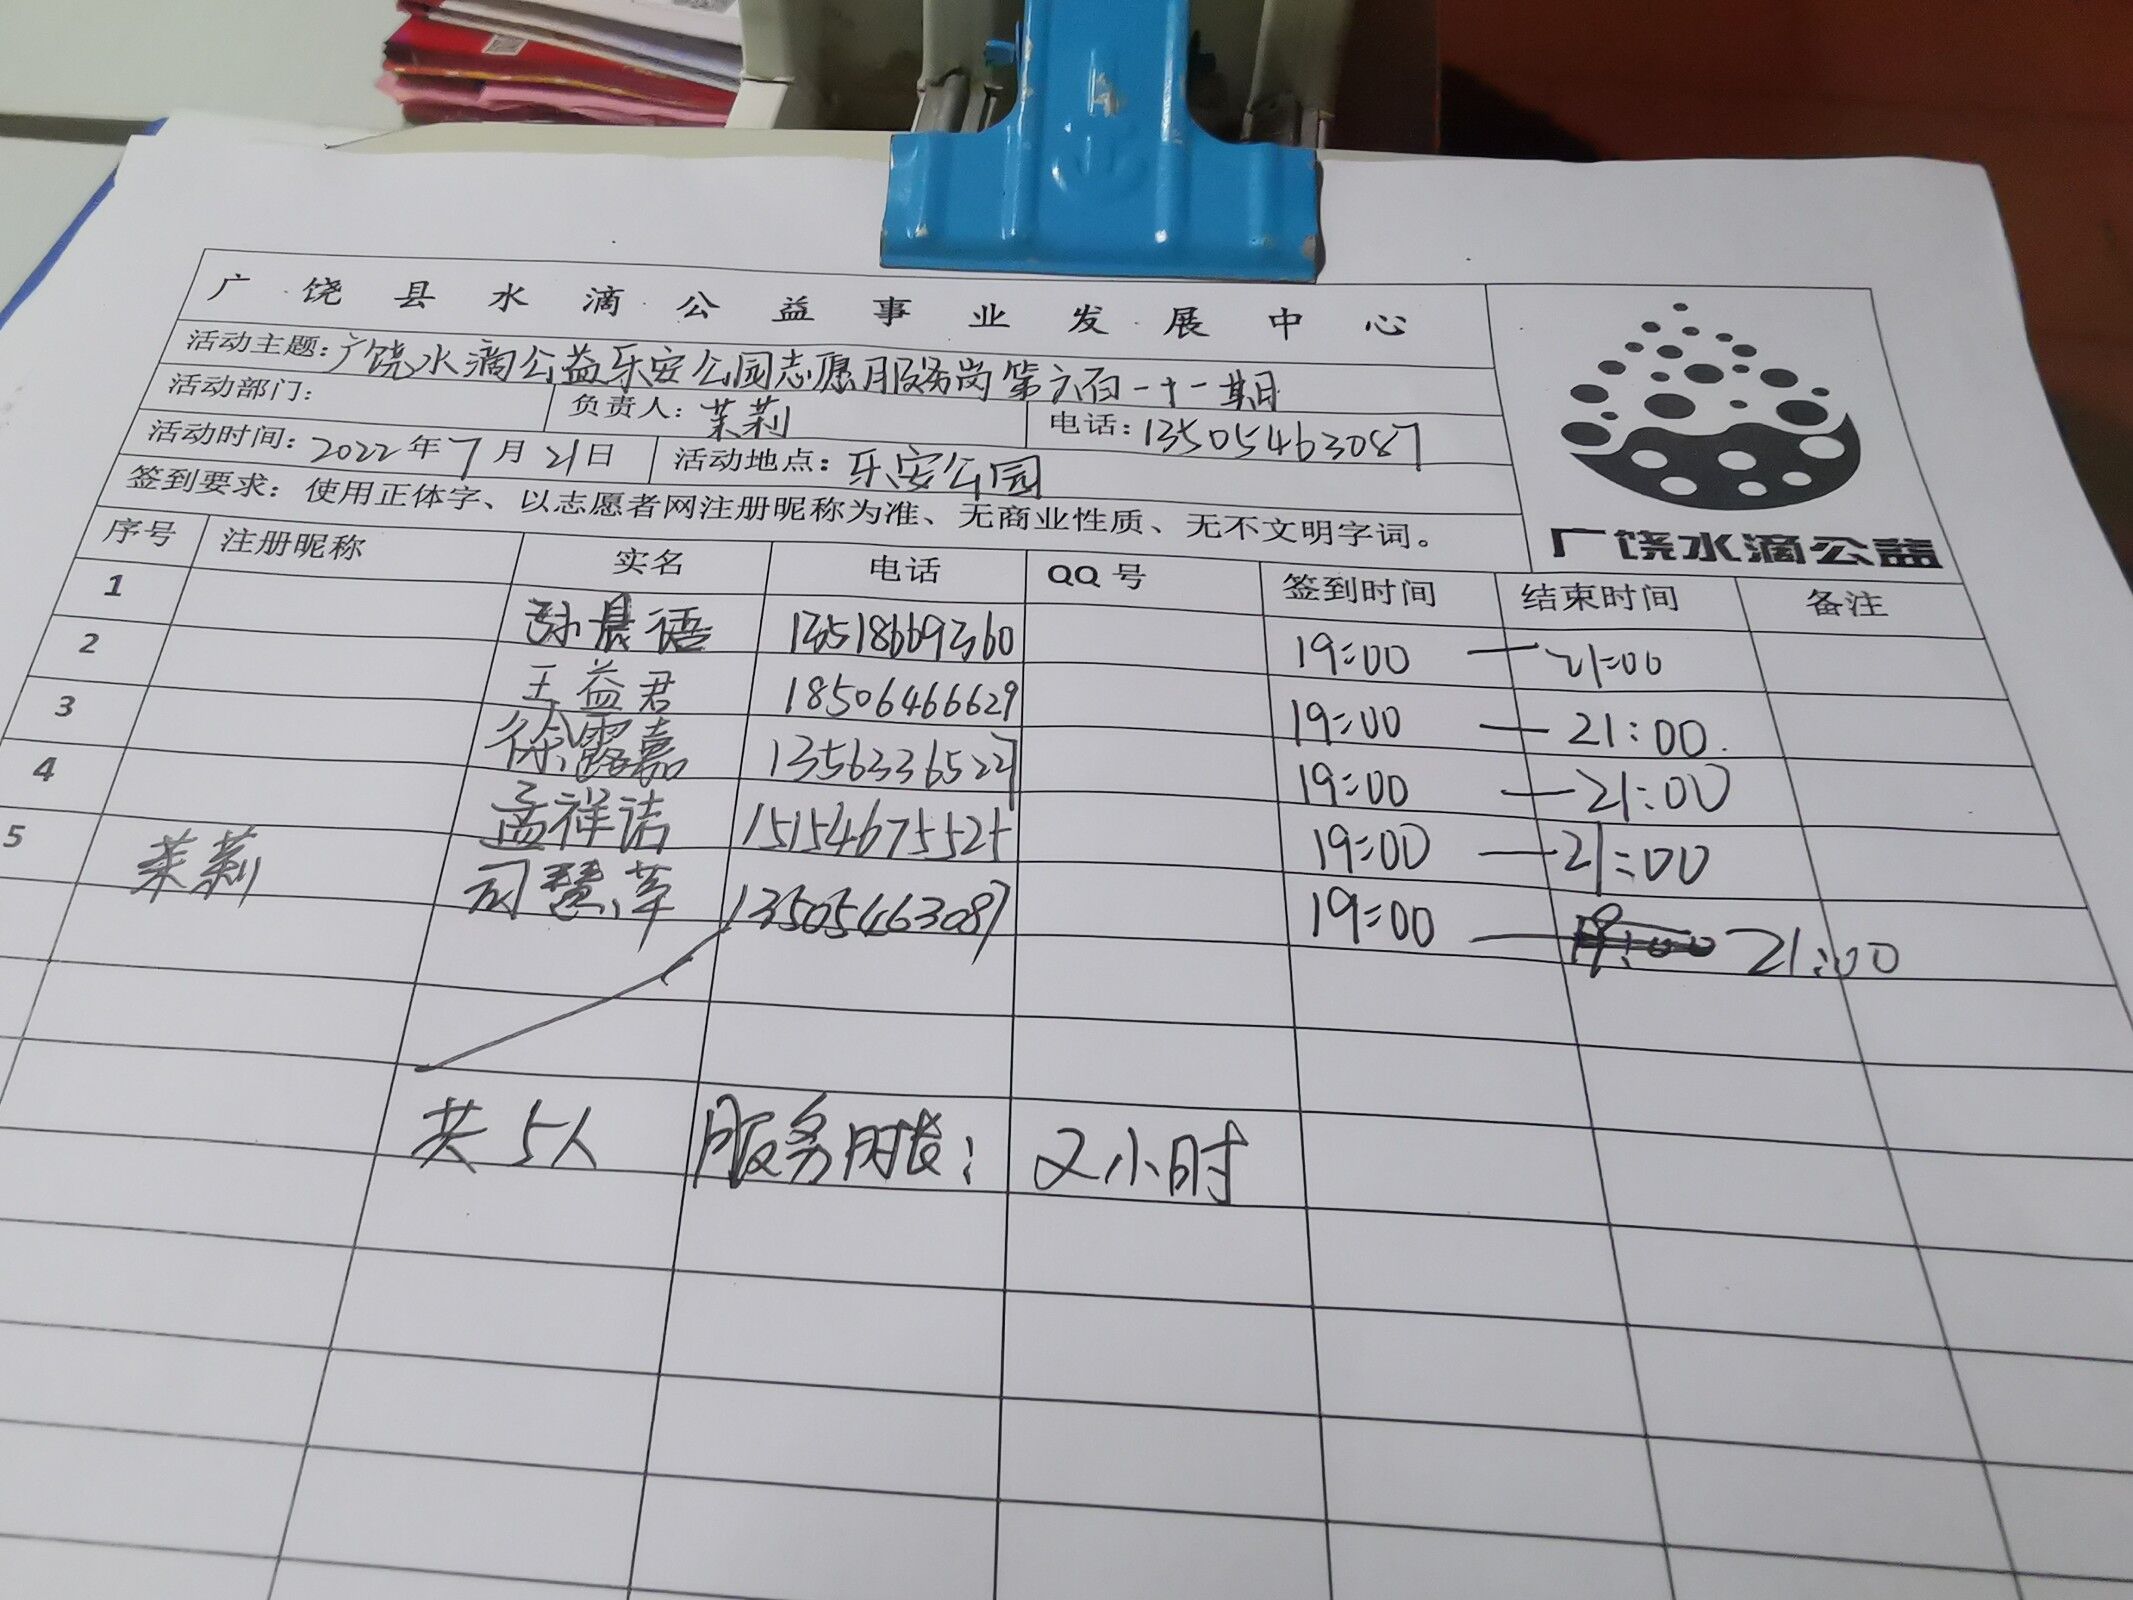 广饶县水滴公益事业发展中心
活动主题：广饶水滴公益乐安公园志愿服务岗第六百一十一期
活动部门： 负责人：茉莉 电话：13505463087
活动时间：2022年7月21日 活动地点：乐安公园
签到要求：使用正体字、以志愿者网注册昵称为准、无商业性质、无不文明字词。
广饶水滴公益
序号 注册昵称 实名 电话 QQ号 签到时间 结束时间 备注
1 孙晨语 13518669360 19:00 — 21:00
2 王益君 18506466629 19:00 — 21:00.
3 徐露嘉 13563365227 19:00 — 21:00
4 孟祥诺 15154675525 19:00 — 21:00
5 茉莉 司慧萍 13505463087 19:00 — 21:00
共5人 服务时长： 2小时